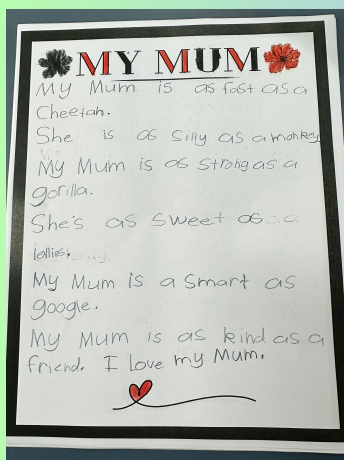 MY MUM
My Mum is as fast as a
Cheetah.
She is as silly as a monkey
My Mum is as strong as a
gorilla.
She's as sweet as a
lollies.
My Mum is a smart as
google.
My Mum is as kind as a
friend. I love my Mum.